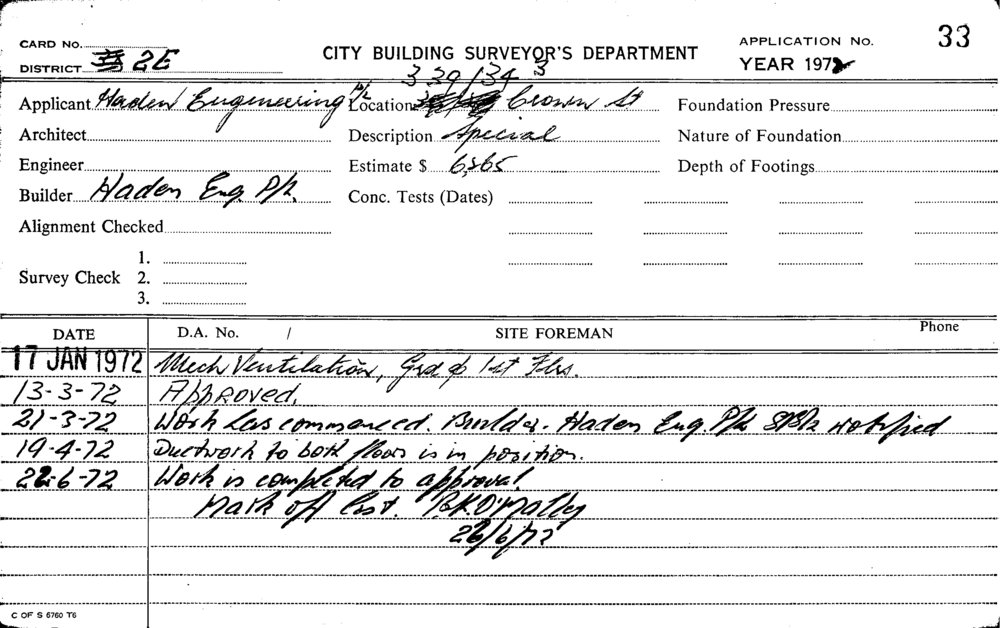 CARD No.
DISTRICT 2E
CITY BUILDING SURVEYOR'S DEPARTMENT
APPLICATION No. 33
YEAR 1972
Applicant Haden Engineering P/L
Location 339/343 Crown St
Foundation Pressure
Architect
Description Special
Nature of Foundation
Engineer
Estimate $ 6,865
Depth of Footings
Builder Haden Eng. P/L
Conc. Tests (Dates)
Alignment Checked
Survey Check 1.
2.
3.
DATE D.A. No. / SITE FOREMAN Phone
17 JAN 1972 Mech Ventilation, Grd & 1st Flrs.
13-3-72 Approved.
21-3-72 Work has commenced. Builder. Haden Eng. P/L notified
19-4-72 Ductwork to both floors is in position.
22-6-72 Work is completed to approval
Mark off List. B.K.O'Malley
26/6/72
C OF S 6760 T6